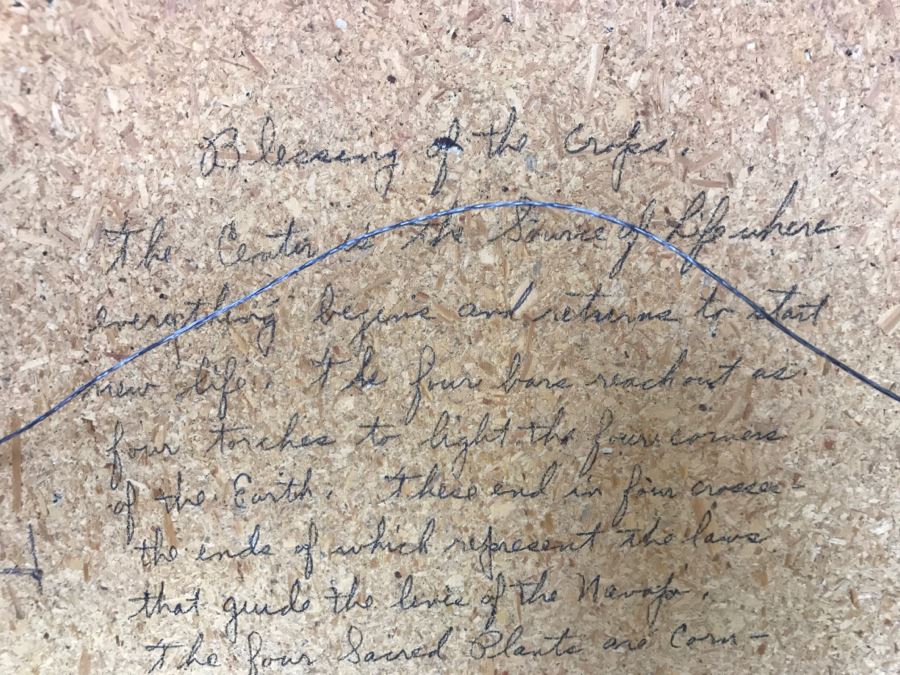 Blessing of the Crops.
The Center is the Source of Life where
everything begins and returns to start
new life. The four bars reach out as
four torches to light the four corners
of the Earth. These end in four crosses-
the ends of which represent the laws
that guide the lives of the Navajo.
The four Sacred Plants are Corn-